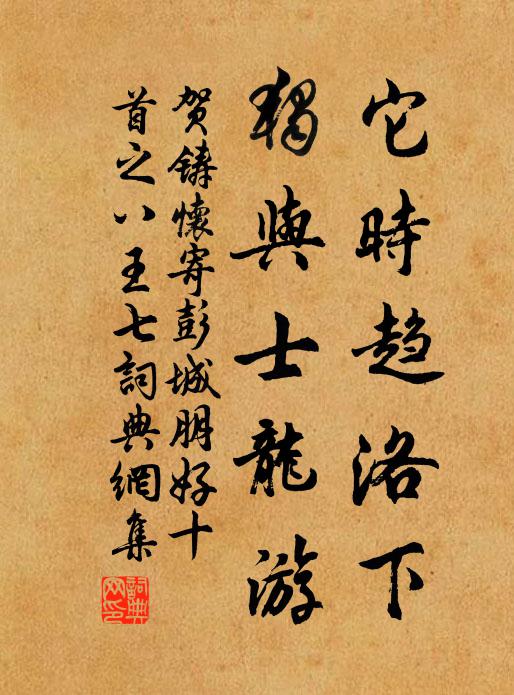 它時趋洛下
獨與士龍游
賀鑄懷寄彭城朋好十
首之八王七詞典網集
詞典
网印